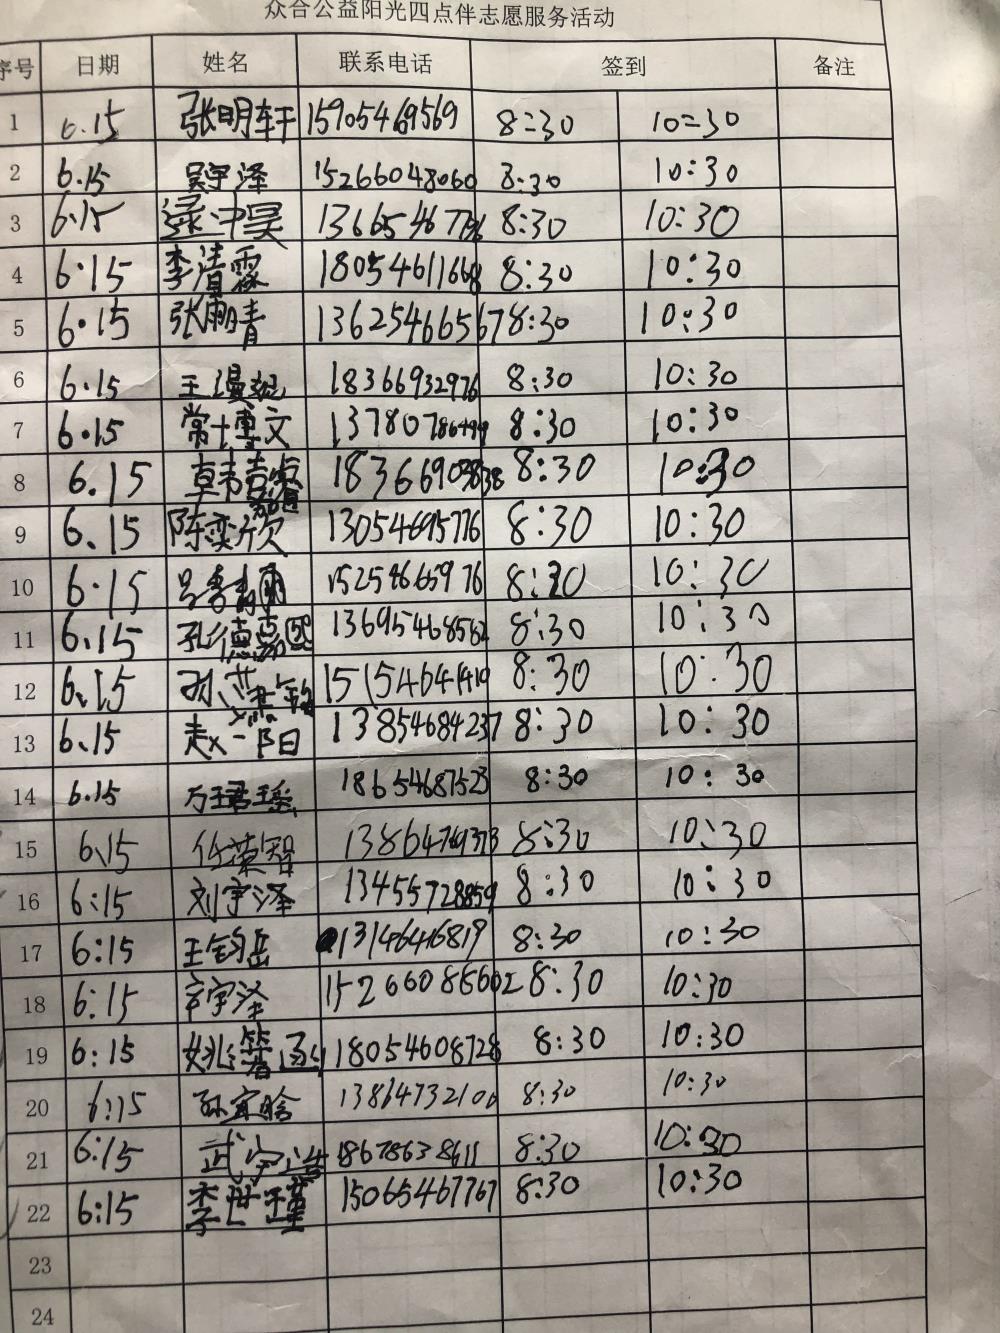 众合公益阳光四点伴志愿服务活动
序号 日期 姓名 联系电话 签到 备注
1 6.15 张明轩 15905469569 8:30 10:30
2 6.15 吴宇泽 15266048060 8:30 10:30
3 6.15 8:30 10:30
4 6.15 李清霖 8:30 10:30
5 6.15 张雨晴 13625466567 8:30 10:30
6 6.15 18366932976 8:30 10:30
7 6.15 常博文 8:30 10:30
8 6.15 8:30 10:30
9 6.15 陈奕欣 13054695776 8:30 10:30
10 6.15 15254665976 8:30 10:30
11 6.15 孔德嘉 13695468562 8:30 10:30
12 6.15 8:30 10:30
13 6.15 赵一阳 13854684237 8:30 10:30
14 6.15 18654687523 8:30 10:30
15 6.15 任荣智 8:30 10:30
16 6:15 刘宇泽 13455728859 8:30 10:30
17 6:15 王钧岳 13146416819 8:30 10:30
18 6:15 8:30 10:30
19 6:15 18054608728 8:30 10:30
20 6:15 孙宜晗 13864732100 8:30 10:30
21 6:15 8:30 10:30
22 6:15 李世瑾 15065467767 8:30 10:30
23
24